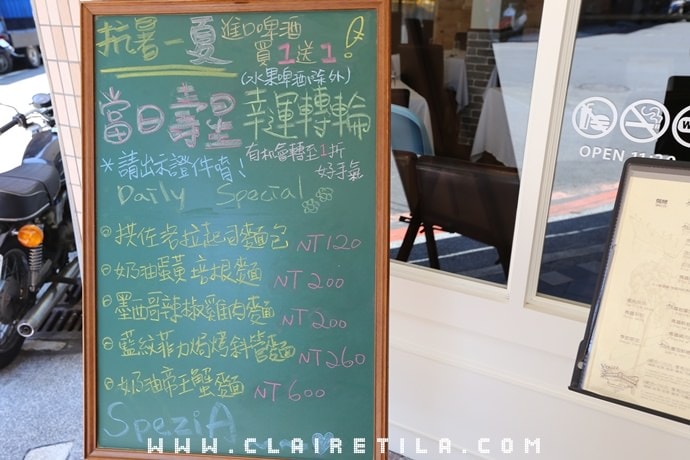 抗暑一夏 進口啤酒
買1送1
(水果啤酒除外)
當日壽星 幸運轉輪
有機會轉至1折
好手氣
*請出示證件唷!
Daily Special
拱佐諾拉起司麵包 NT120
奶油蛋黃培根麵 NT200
墨西哥辣椒雞肉麵 NT200
藍紋菲力焗烤斜管麵 NT260
奶油帝王蟹麵 NT600
SpeziA
OPEN 11:30
WWW.CLAIRETILA.COM